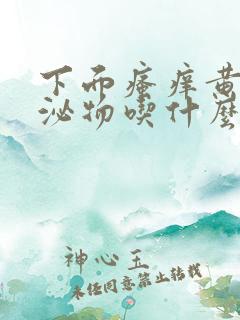 下而瘙痒黄
泌物喫什麽
神心玉
未经同意禁止转载